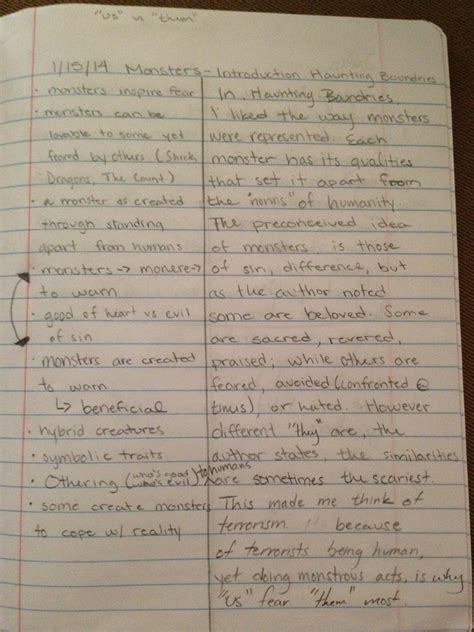 "us" vs "them"
1/15/14 Monsters - Introduction Haunting Boundries
· monsters inspire fear
· monsters can be
lovable to some yet
feared by others (Shrek,
Dragons, The Count)
· a monster as created
through standing
apart from humans
· monsters → monere →
to warn
· good of heart vs evil
of sin
· monsters are created
to warn
↳ beneficial
· hybrid creatures
· symbolic traits
· Othering (who's good/who's evil) to humans
· some create monsters
to cope w/ reality
In Haunting Boundries,
I liked the way monsters
were represented. Each
monster has its qualities
that set it apart from
the "norms" of humanity.
The preconceived idea
of monsters, is those
of sin, difference, but
as the author noted
some are beloved. Some
are sacred, revered,
praised; while others are
feared, avoided (confronted @
times), or hated. However
different "they" are, the
author states, the similarities
are sometimes the scariest.
This made me think of
terrorism because
of terrorists being human,
yet doing monstrous acts, is why
"us" fear "them" most.